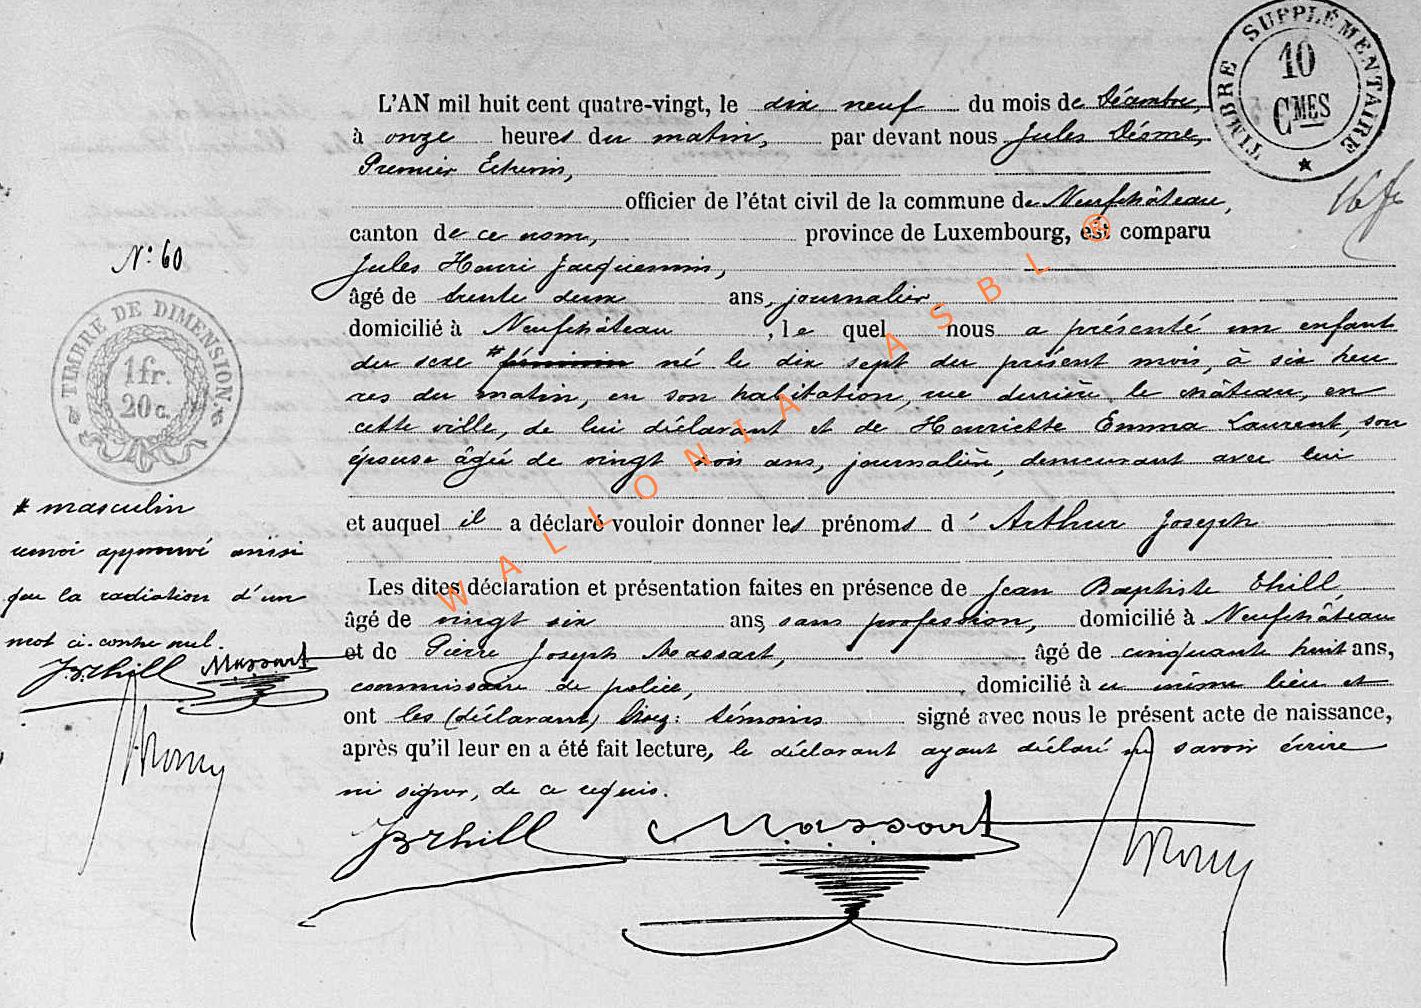 TIMBRE SUPPLÉMENTAIRE
10
CMES
L'AN mil huit cent quatre-vingt, le dix neuf du mois de Décembre,
à onze heures du matin, par devant nous Jules
Premier Echevin,
officier de l'état civil de la commune de Neufchâteau,
canton de ce nom, province de Luxembourg, est comparu
Jules Henri Jacquemin,
âgé de trente deux ans, journalier
domicilié à Neufchâteau, le quel nous a présenté un enfant
du sexe # féminin né le dix sept du présent mois, à six heu
res du matin, en son habitation, rue derrière le château, en
cette ville, de lui déclarant et de Henriette Emma Laurent, son
épouse âgée de vingt trois ans, journalière, demeurant avec lui
et auquel il a déclaré vouloir donner les prénoms d' Arthur Joseph
Les dites déclaration et présentation faites en présence de Jean Baptiste Thill
âgé de vingt six ans, sans profession, domicilié à Neufchâteau
et de Pierre Joseph Massart, âgé de cinquante huit ans,
commissaire de police, domicilié à ce même lieu et
ont les (déclarant) témoins signé avec nous le présent acte de naissance,
après qu'il leur en a été fait lecture, le déclarant ayant déclaré ne savoir écrire
ni signer, de ce requis.
JBThill Massart
N° 60
TIMBRE DE DIMENSION
1 fr.
20 c.
# masculin
renvoi approuvé ainsi
que la radiation d'un
mot ci-contre nul.
JBThill Massart
WALLONIA ASBL ®